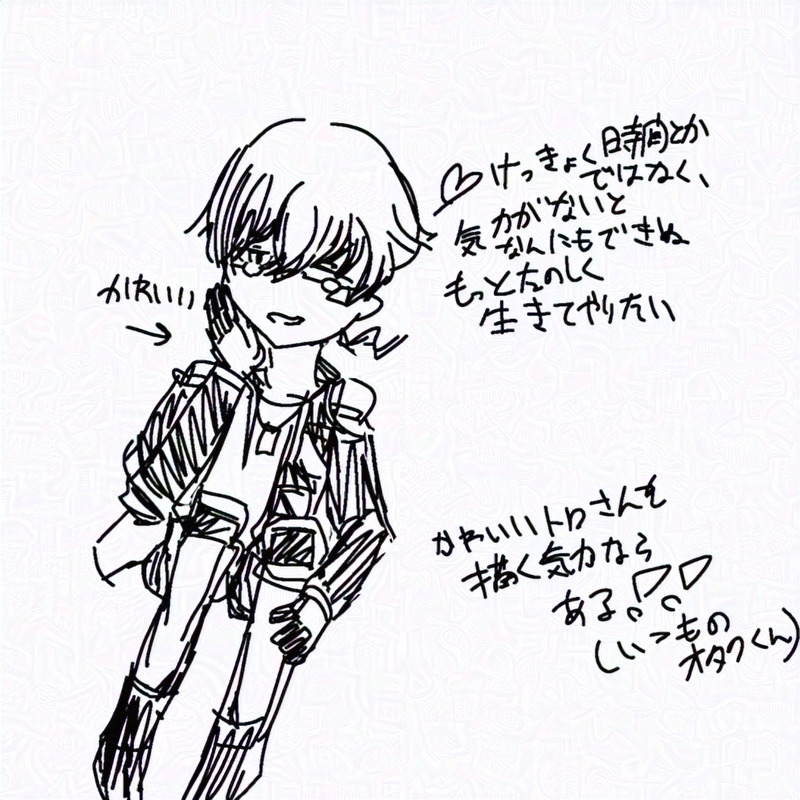 けっきょく時間とか
ではなく、
気力がないと
なんにもできぬ
もっとたのしく
生きてやりたい
かわいい
かわいいトロさんを
描く気力なら
ある!!
(いつもの
オタクくん)